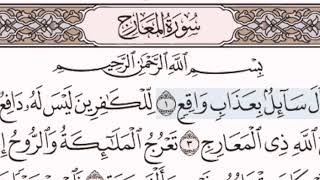 سُورَةُ المَعَارِجِ
بِسْمِ ٱللَّهِ ٱلرَّحْمَٰنِ ٱلرَّحِيمِ
لَ سَآئِلُۢ بِعَذَابٖ وَاقِعٖ ١ لِّلۡكَٰفِرِينَ لَيۡسَ لَهُۥ دَافِعٞ
ٱللَّهِ ذِي ٱلۡمَعَارِجِ ٣ تَعۡرُجُ ٱلۡمَلَٰٓئِكَةُ وَٱلرُّوحُ إِ